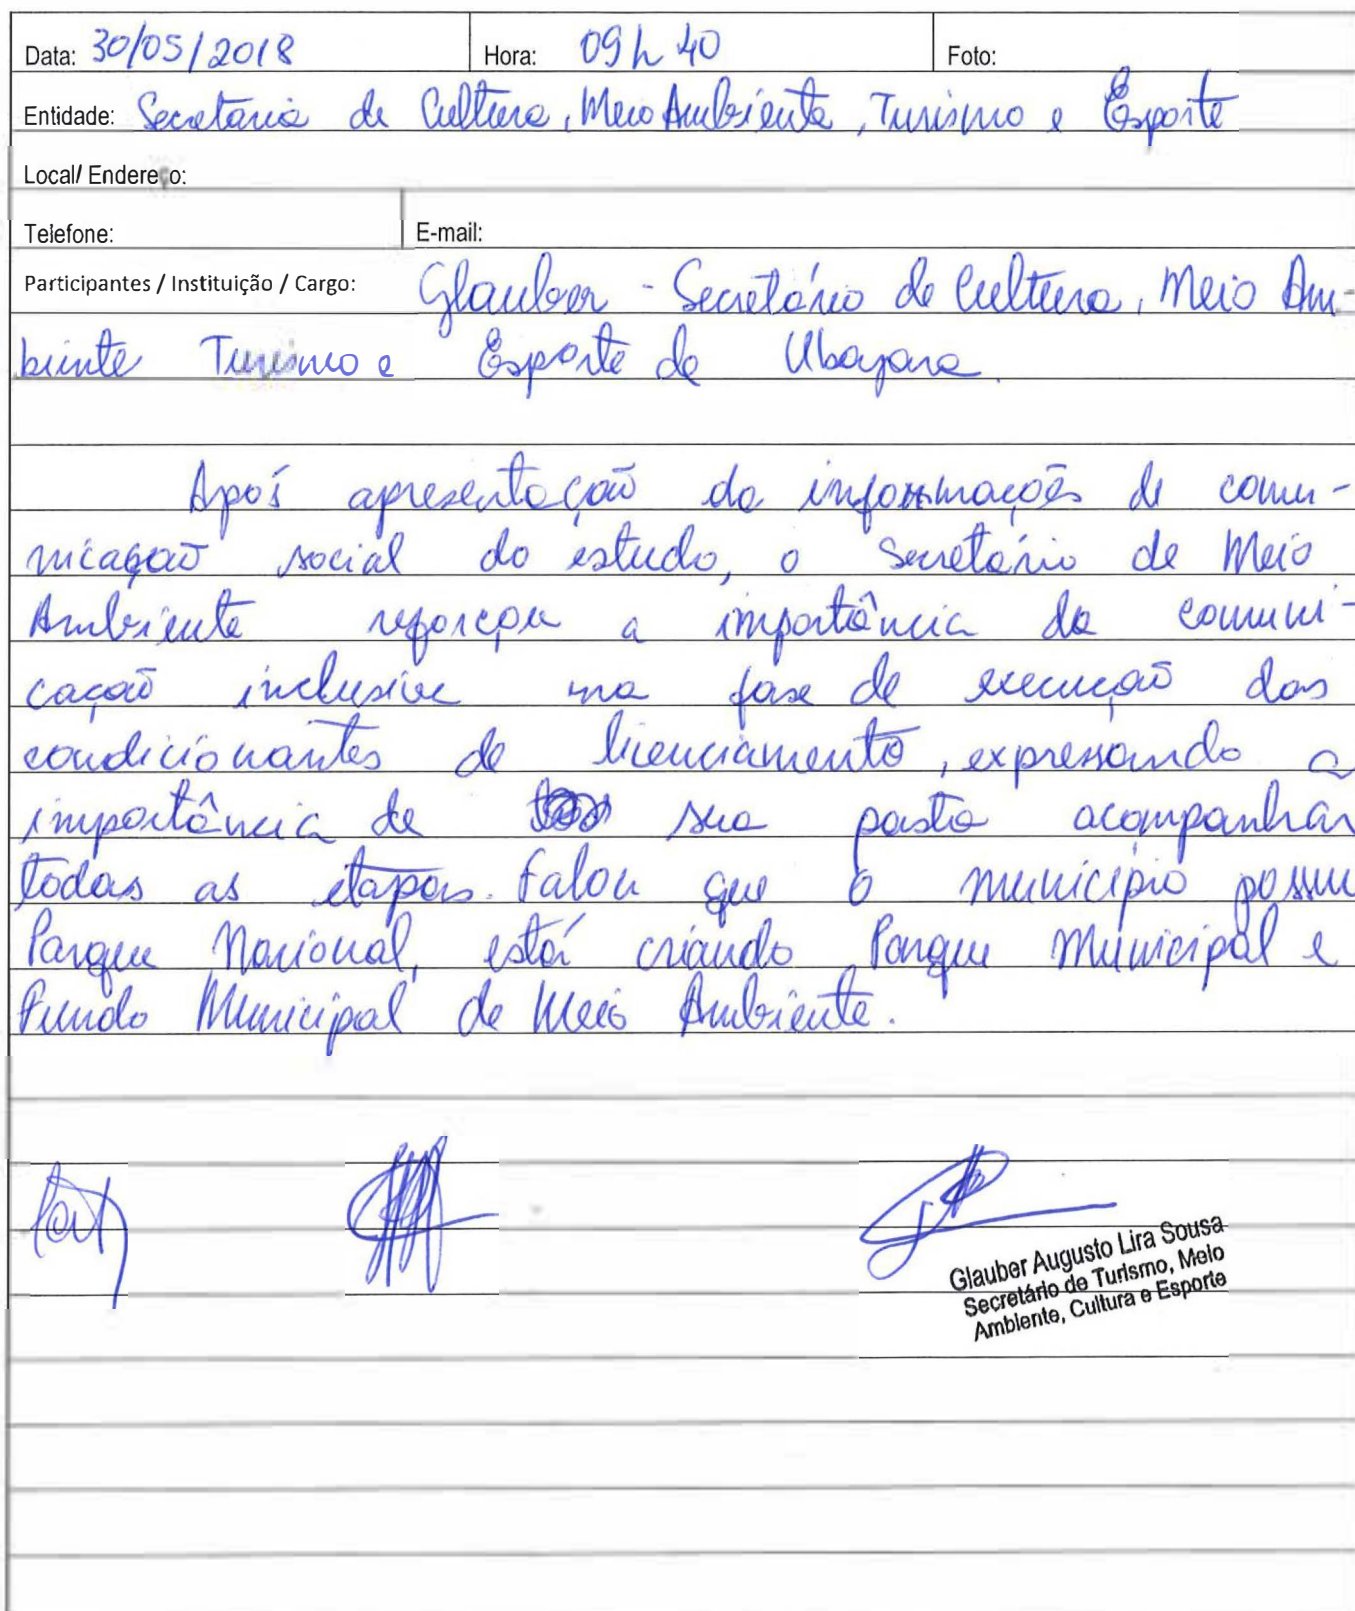 Data: 30/05/2018 Hora: 09h40 Foto:
Entidade: Secretaria de Cultura, Meio Ambiente, Turismo e Esporte
Local/ Endereço:
Telefone: E-mail:
Participantes / Instituição / Cargo: Glauber - Secretário de Cultura, Meio Am-
biente Turismo e Esporte de Ubajara.
Após apresentação da informações de comu-
nicação social do estudo, o Secretário de Meio
Ambiente reforçou a importância da comuni-
cação inclusive na fase de execução das
condicionantes de licenciamento, expressando a
importância de sua pasta acompanhar
todas as etapas. Falou que o município possui
Parque Nacional, está criando Parque Municipal e
Fundo Municipal de Meio Ambiente.
Glauber Augusto Lira Sousa
Secretário de Turismo, Meio
Ambiente, Cultura e Esporte